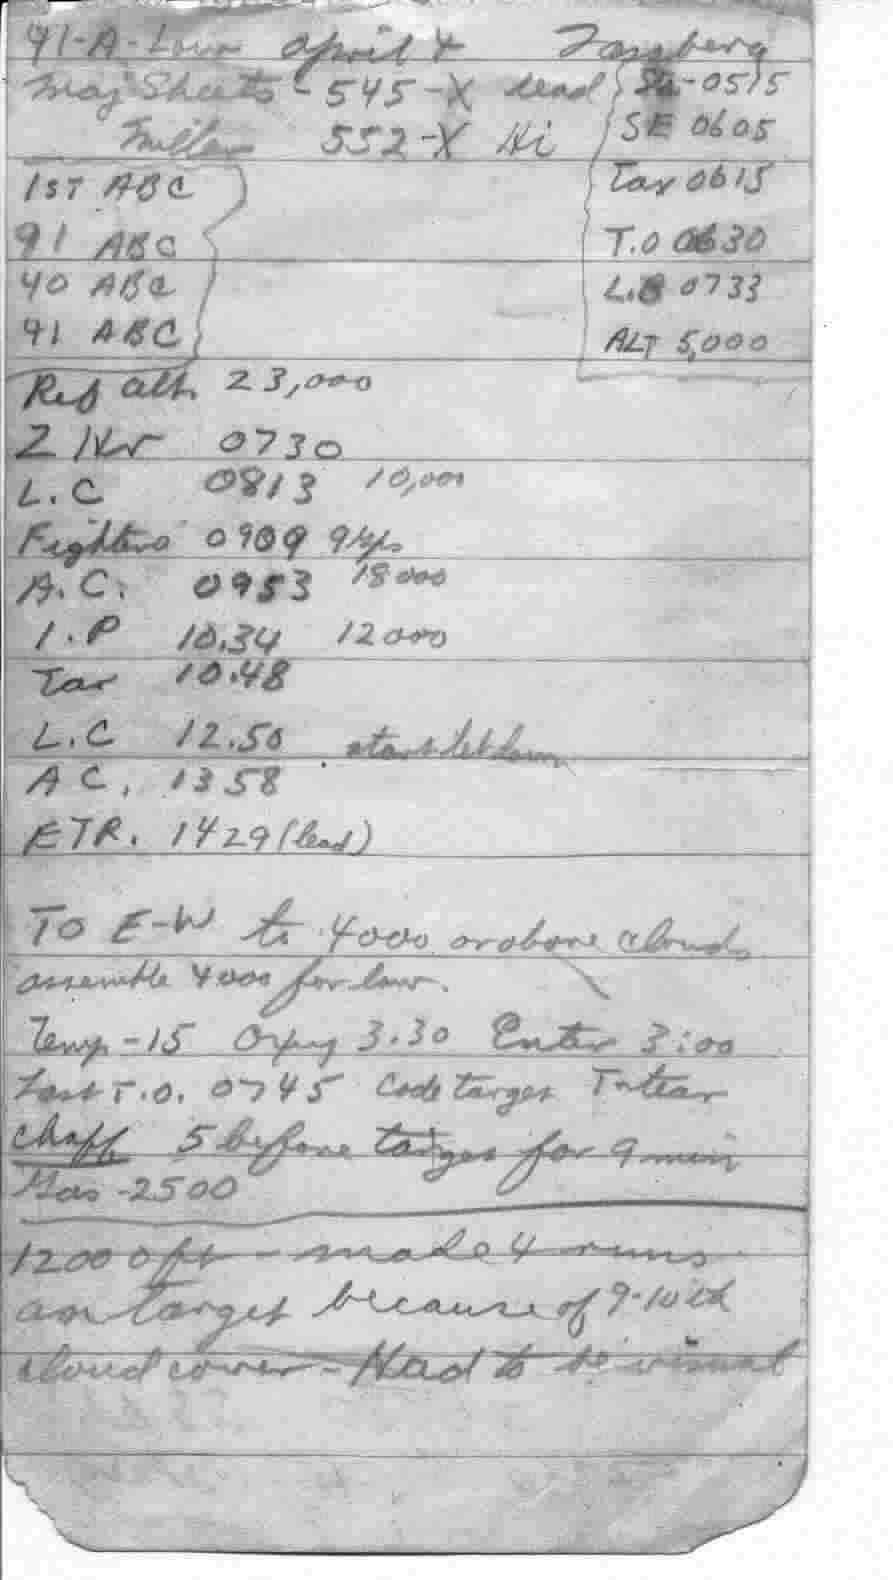 41-A-Low April 4 Fassberg
Maj Sheets - 545-X lead Sta-0515
Miller 552-X Hi SE 0605
1ST ABC Tax 0615
91 ABC T.O 0630
40 ABC L.B 0733
41 ABC ALT 5,000
Ref alt. 23,000
Z Hr 0730
L.C 0813 10,000
Fighters 0909 9 gps
A.C. 0953 18000
I.P 10.34 12000
Tar 10.48
L.C 12.50 start let down
A C. 1358
ETR. 1429 (lead)
TO E-W to 4000 or above clouds
assemble 4000 for low.
Temp -15 Oxyg 3.30 Enter 3:00
Last T.O. 0745 Code target
chaff 5 before target for 9 min
Gas -2500
12000 ft - made 4 runs
on target because of 9-10th
cloud cover - Had to be visual